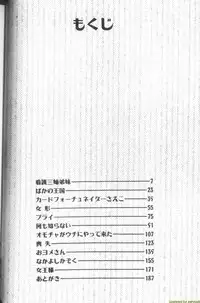 もくじ
看護三姉弟妹 7
ばかの王国 23
カードフォーチュネイターさえこ 39
女形 55
フライ 75
何も知らない 91
オモチャがウチにやって来た 107
喪失 123
おヨメさん 139
なかよしかぞく 155
女王様 171
あとがき 187